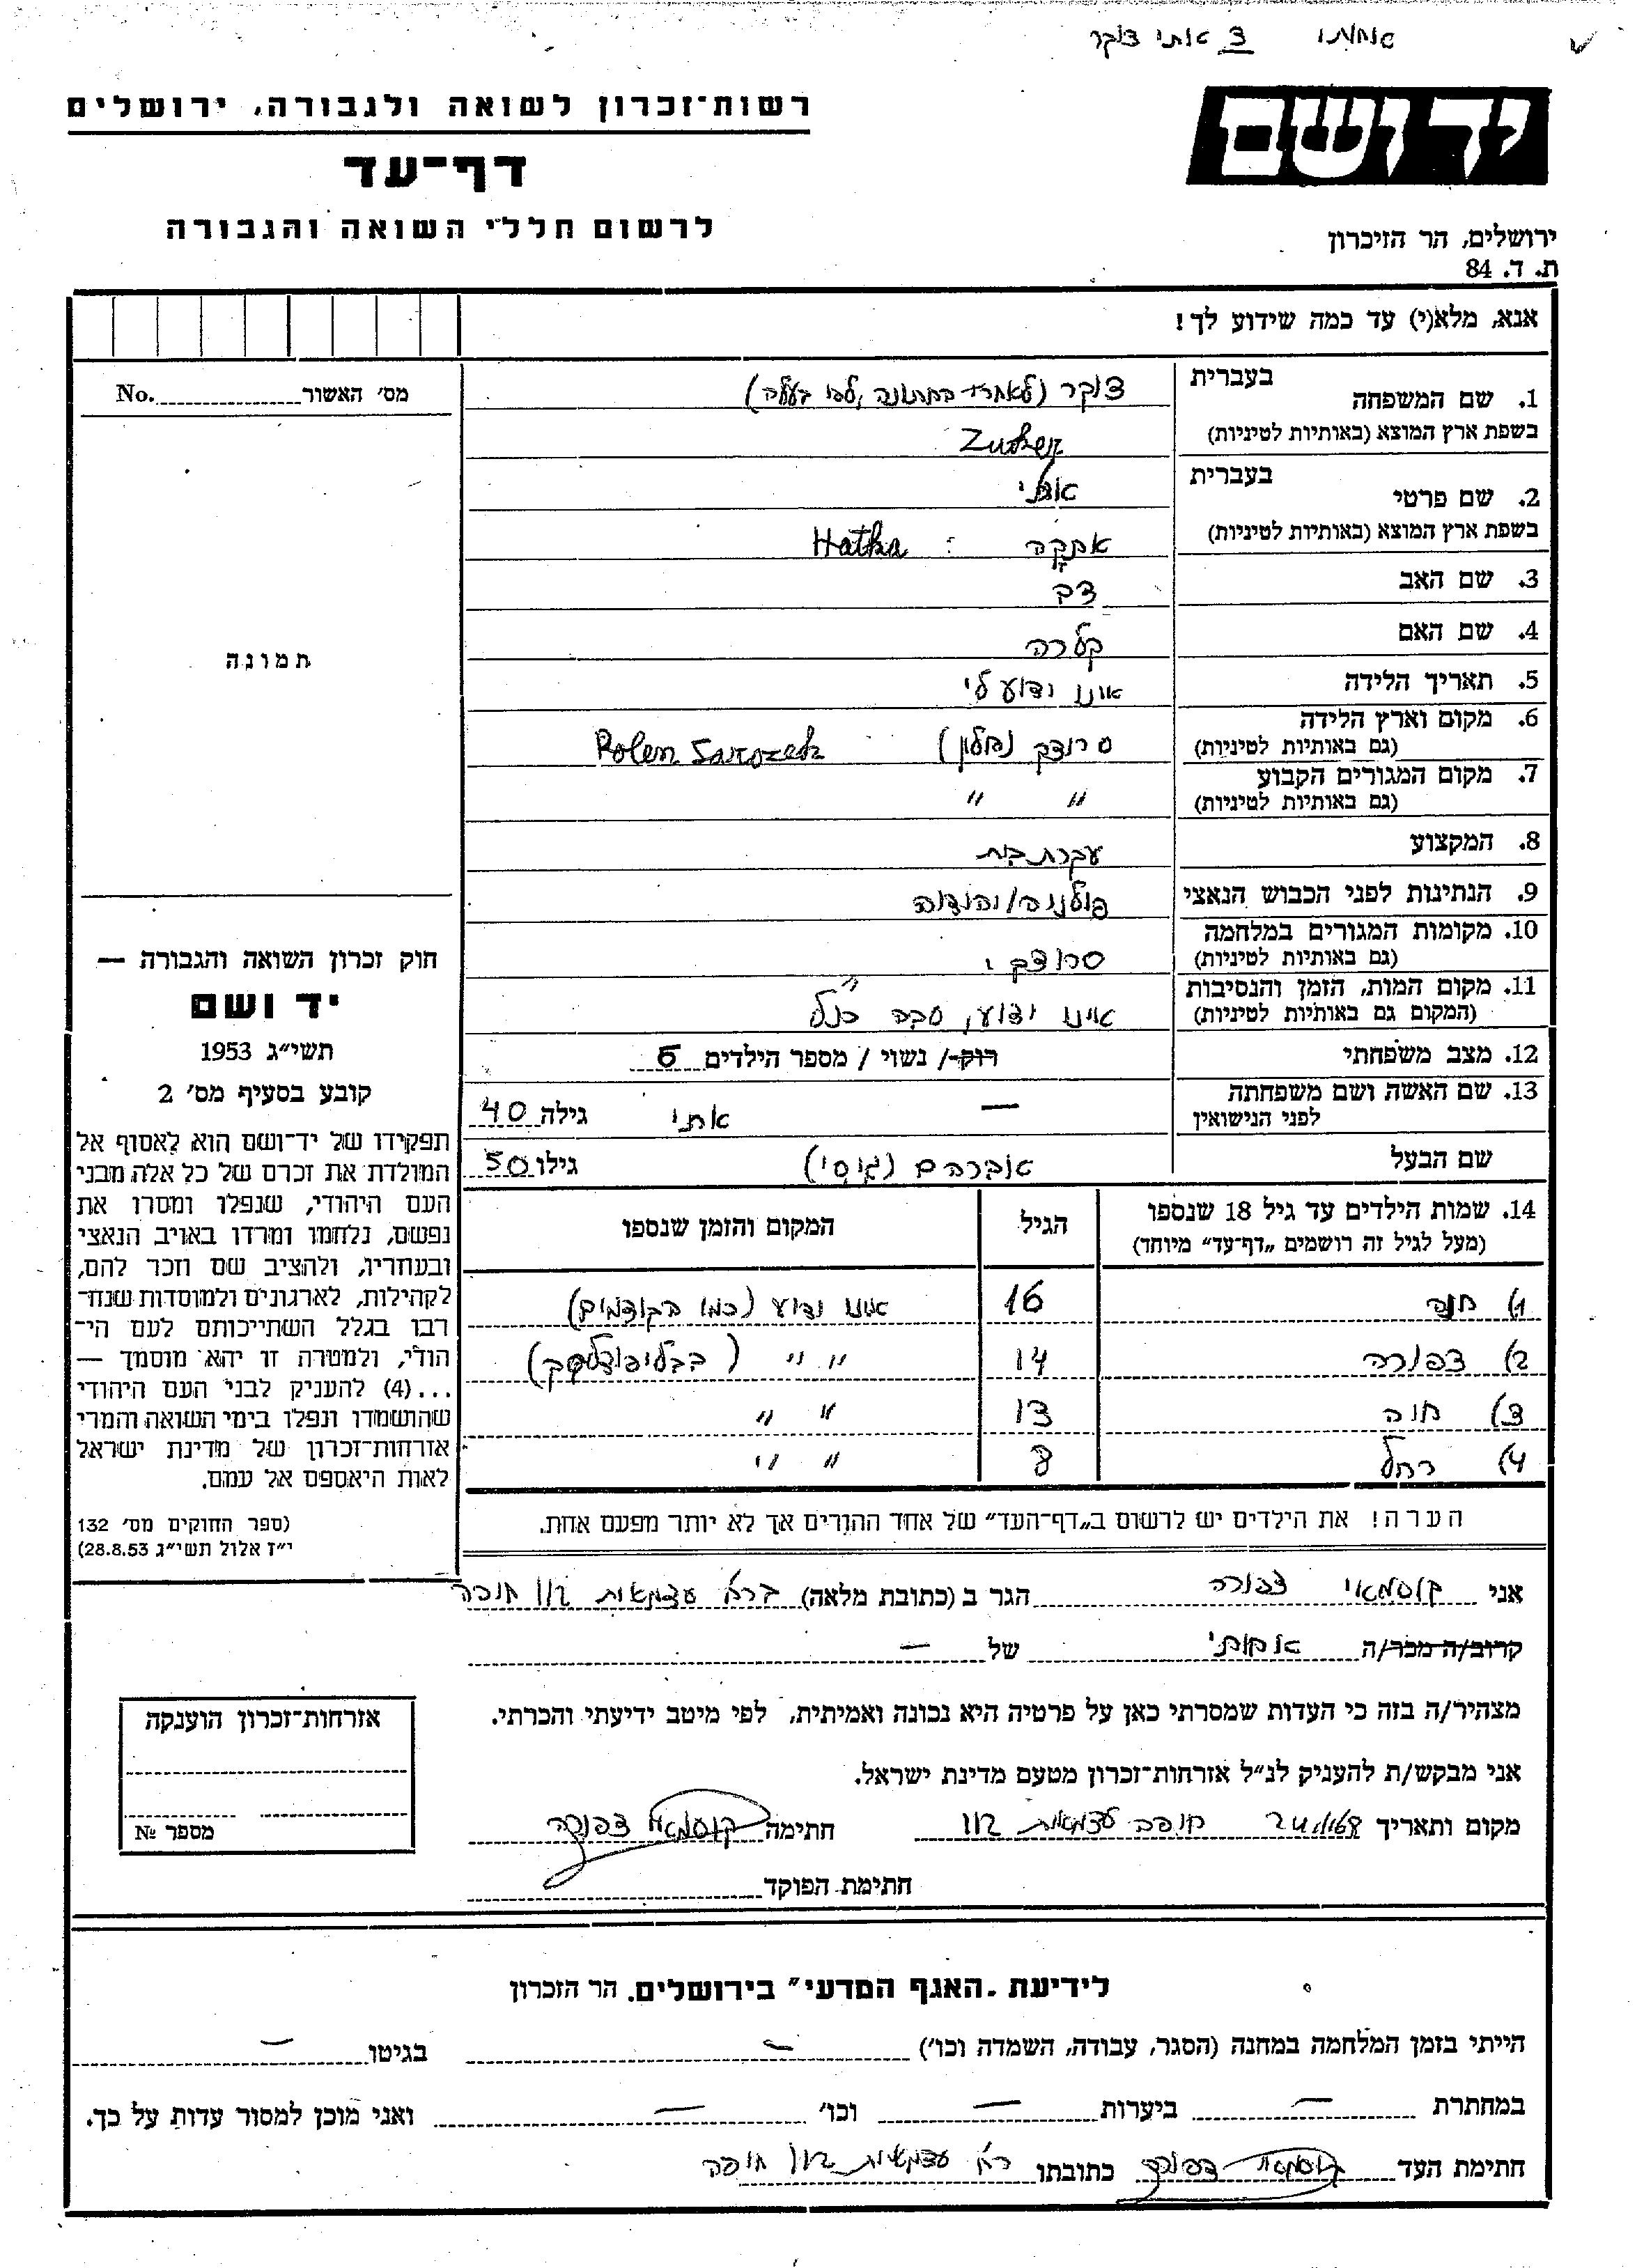 אתי צוקר
רשות־זכרון לשואה ולגבורה, ירושלים
יד ושם
דף־עד
לרשום חללי השואה והגבורה
ירושלים, הר הזיכרון
ת. ד. 84
אנא, מלא(י) עד כמה שידוע לך!
מס׳ האשור No.
1. שם המשפחה בעברית צוקר (לאחר החתונה, לפי בעלה)
בשפת ארץ המוצא (באותיות לטיניות) Zuker
2. שם פרטי בעברית אתי
בשפת ארץ המוצא (באותיות לטיניות) אתקה : Hatka
3. שם האב צבי
4. שם האם קלרה
5. תאריך הלידה אינו ידוע לי
6. מקום וארץ הלידה (גם באותיות לטיניות) סרוצק (פולין) Polen Sarozek
7. מקום המגורים הקבוע (גם באותיות לטיניות) " "
8. המקצוע עקרת בית
9. הנתינות לפני הכבוש הנאצי פולניה/יהודיה
10. מקומות המגורים במלחמה (גם באותיות לטיניות) סרוצק
11. מקום המות, הזמן והנסיבות (המקום גם באותיות לטיניות) אינו ידוע, כנ"ל
12. מצב משפחתי רוק/ נשוי / מספר הילדים 6
13. שם האשה ושם משפחתה לפני הנישואין — אתי גילה 40
שם הבעל אברהם גילו 50
14. שמות הילדים עד גיל 18 שנספו
(מעל לגיל זה רושמים „דף־עד” מיוחד)
הגיל
המקום והזמן שנספו
1) חנה 16 אינו ידוע (כמו הקודמים)
2) צפורה 14 " "
3) חוה 13 " "
4) רחל 8 " "
הערה! את הילדים יש לרשום ב„דף־העד” של אחד ההורים אך לא יותר מפעם אחת.
תמונה
חוק זכרון השואה והגבורה —
יד ושם
תשי״ג 1953
קובע בסעיף מס׳ 2
תפקידו של יד־ושם הוא לאסוף אל
המולדת את זכרם של כל אלה מבני
העם היהודי, שנפלו ומסרו את
נפשם, נלחמו ומרדו באויב הנאצי
ובעוזריו, ולהציב שם וזכר להם,
לקהילות, לארגונים ולמוסדות שנח־
רבו בגלל השתייכותם לעם הי־
הודי, ולמטרה זו יהא מוסמך —
...(4) להעניק לבני העם היהודי
שהושמדו ונפלו בימי השואה והמרי
אזרחות־זכרון של מדינת ישראל
לאות היאספם אל עמם.
(ספר החוקים מס׳ 132
י״ז אלול תשי״ג 28.8.53)
אני קוסמאי צפורה הגר ב (כתובת מלאה) עצמאות חיפה
קרוב/ה מכר/ה אחותי של —
מצהיר/ה בזה כי העדות שמסרתי כאן על פרטיה היא נכונה ואמיתית, לפי מיטב ידיעתי והכרתי.
אני מבקש/ת להעניק לנ״ל אזרחות־זכרון מטעם מדינת ישראל.
מקום ותאריך חיפה עצמאות חתימה קוסמאי צפורה
חתימת הפוקד
אזרחות־זכרון הוענקה
מספר №
לידיעת „האגף המדעי” בירושלים. הר הזכרון
הייתי בזמן המלחמה במחנה (הסגר, עבודה, השמדה וכו׳) — בגיטו —
במחתרת — ביערות — וכו׳ — ואני מוכן למסור עדות על כך.
חתימת העד קוסמאי צפורה כתובתו עצמאות חיפה